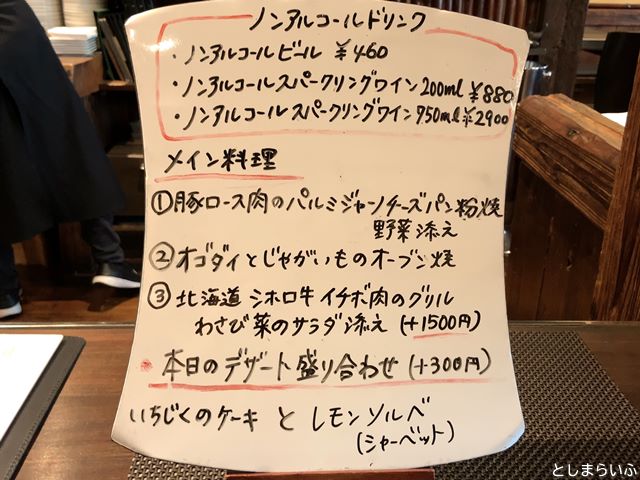 ノンアルコールドリンク
・ノンアルコールビール ¥460
・ノンアルコールスパークリングワイン 200ml ¥880
・ノンアルコールスパークリングワイン 750ml ¥2900
メイン料理
①豚ロース肉のパルミジャーノチーズパン粉焼
野菜添え
②オゴダイとじゃがいものオーブン焼
③北海道 シホロ牛イチボ肉のグリル
わさび菜のサラダ添え (+1500円)
・本日のデザート盛り合わせ (+300円)
いちじくのケーキ と レモンソルベ
(シャーベット)
としまらいふ